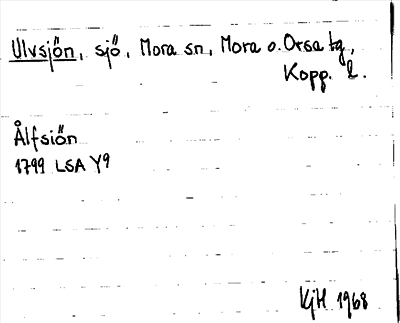 Ulvsjön, sjö, Mora sn, Mora o. Orsa tg,
Kopp. l.
Ålfsiön
1799 LSA Y9
KjH 1968